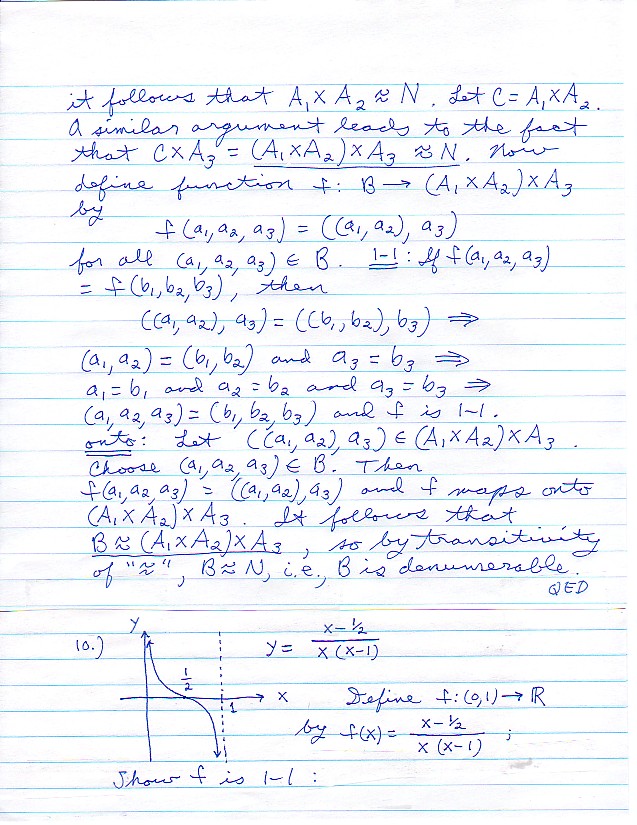 it follows that A₁ x A₂ ≈ N. Let C = A₁ x A₂.
A similar argument leads to the fact
that C x A₃ = (A₁ x A₂) x A₃ ≈ N. Now
define function f: B → (A₁ x A₂) x A₃
by
f(a₁, a₂, a₃) = ((a₁, a₂), a₃)
for all (a₁, a₂, a₃) ∈ B. 1-1: If f(a₁, a₂, a₃)
= f(b₁, b₂, b₃), then
((a₁, a₂), a₃) = ((b₁, b₂), b₃) ⇒
(a₁, a₂) = (b₁, b₂) and a₃ = b₃ ⇒
a₁ = b₁ and a₂ = b₂ and a₃ = b₃ ⇒
(a₁, a₂, a₃) = (b₁, b₂, b₃) and f is 1-1.
onto: Let ((a₁, a₂), a₃) ∈ (A₁ x A₂) x A₃.
Choose (a₁, a₂, a₃) ∈ B. Then
f(a₁, a₂, a₃) = ((a₁, a₂), a₃) and f maps onto
(A₁ x A₂) x A₃. It follows that
B ≈ (A₁ x A₂) x A₃, so by transitivity
of "≈", B ≈ N, i.e., B is denumerable.
QED
10.) y = (x - 1/2) / (x (x-1))
y
1/2
1
x
Define f: (0,1) → ℝ
by f(x) = (x - 1/2) / (x (x-1)) ;
Show f is 1-1 :